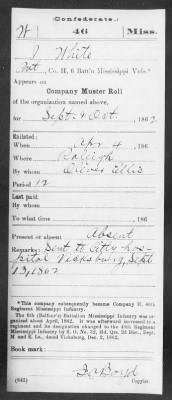 (Confederate.)
W 46 Miss.
J White
Pvt, Co. H, 6 Batt'n Mississippi Vols.*
Appears on
Company Muster Roll
of the organization named above,
for Sept & Oct, 186
Enlisted:
When Apr 4, 186
Where Raleigh
By whom Oliver Ellis
Period 12
Last paid:
By whom
To what time , 186
Present or absent Absent
Remarks: Sent to City hos-
pital Vicksburg, Sept
13, 1862
*This company subsequently became Company H, 46th
Regiment Mississippi Infantry.
The 6th (Balfour's) Battalion Mississippi Infantry was
organized about April, 1862. It was afterward increased to a
regiment and its designation changed to the 46th Regiment
Mississippi Infantry by S. O. No. 32, Hd. Qrs. 2d Dist., Dept.
M. and E. La., dated Vicksburg, Dec. 2, 1862.
Book mark:
(642) Boyd
Copyist.